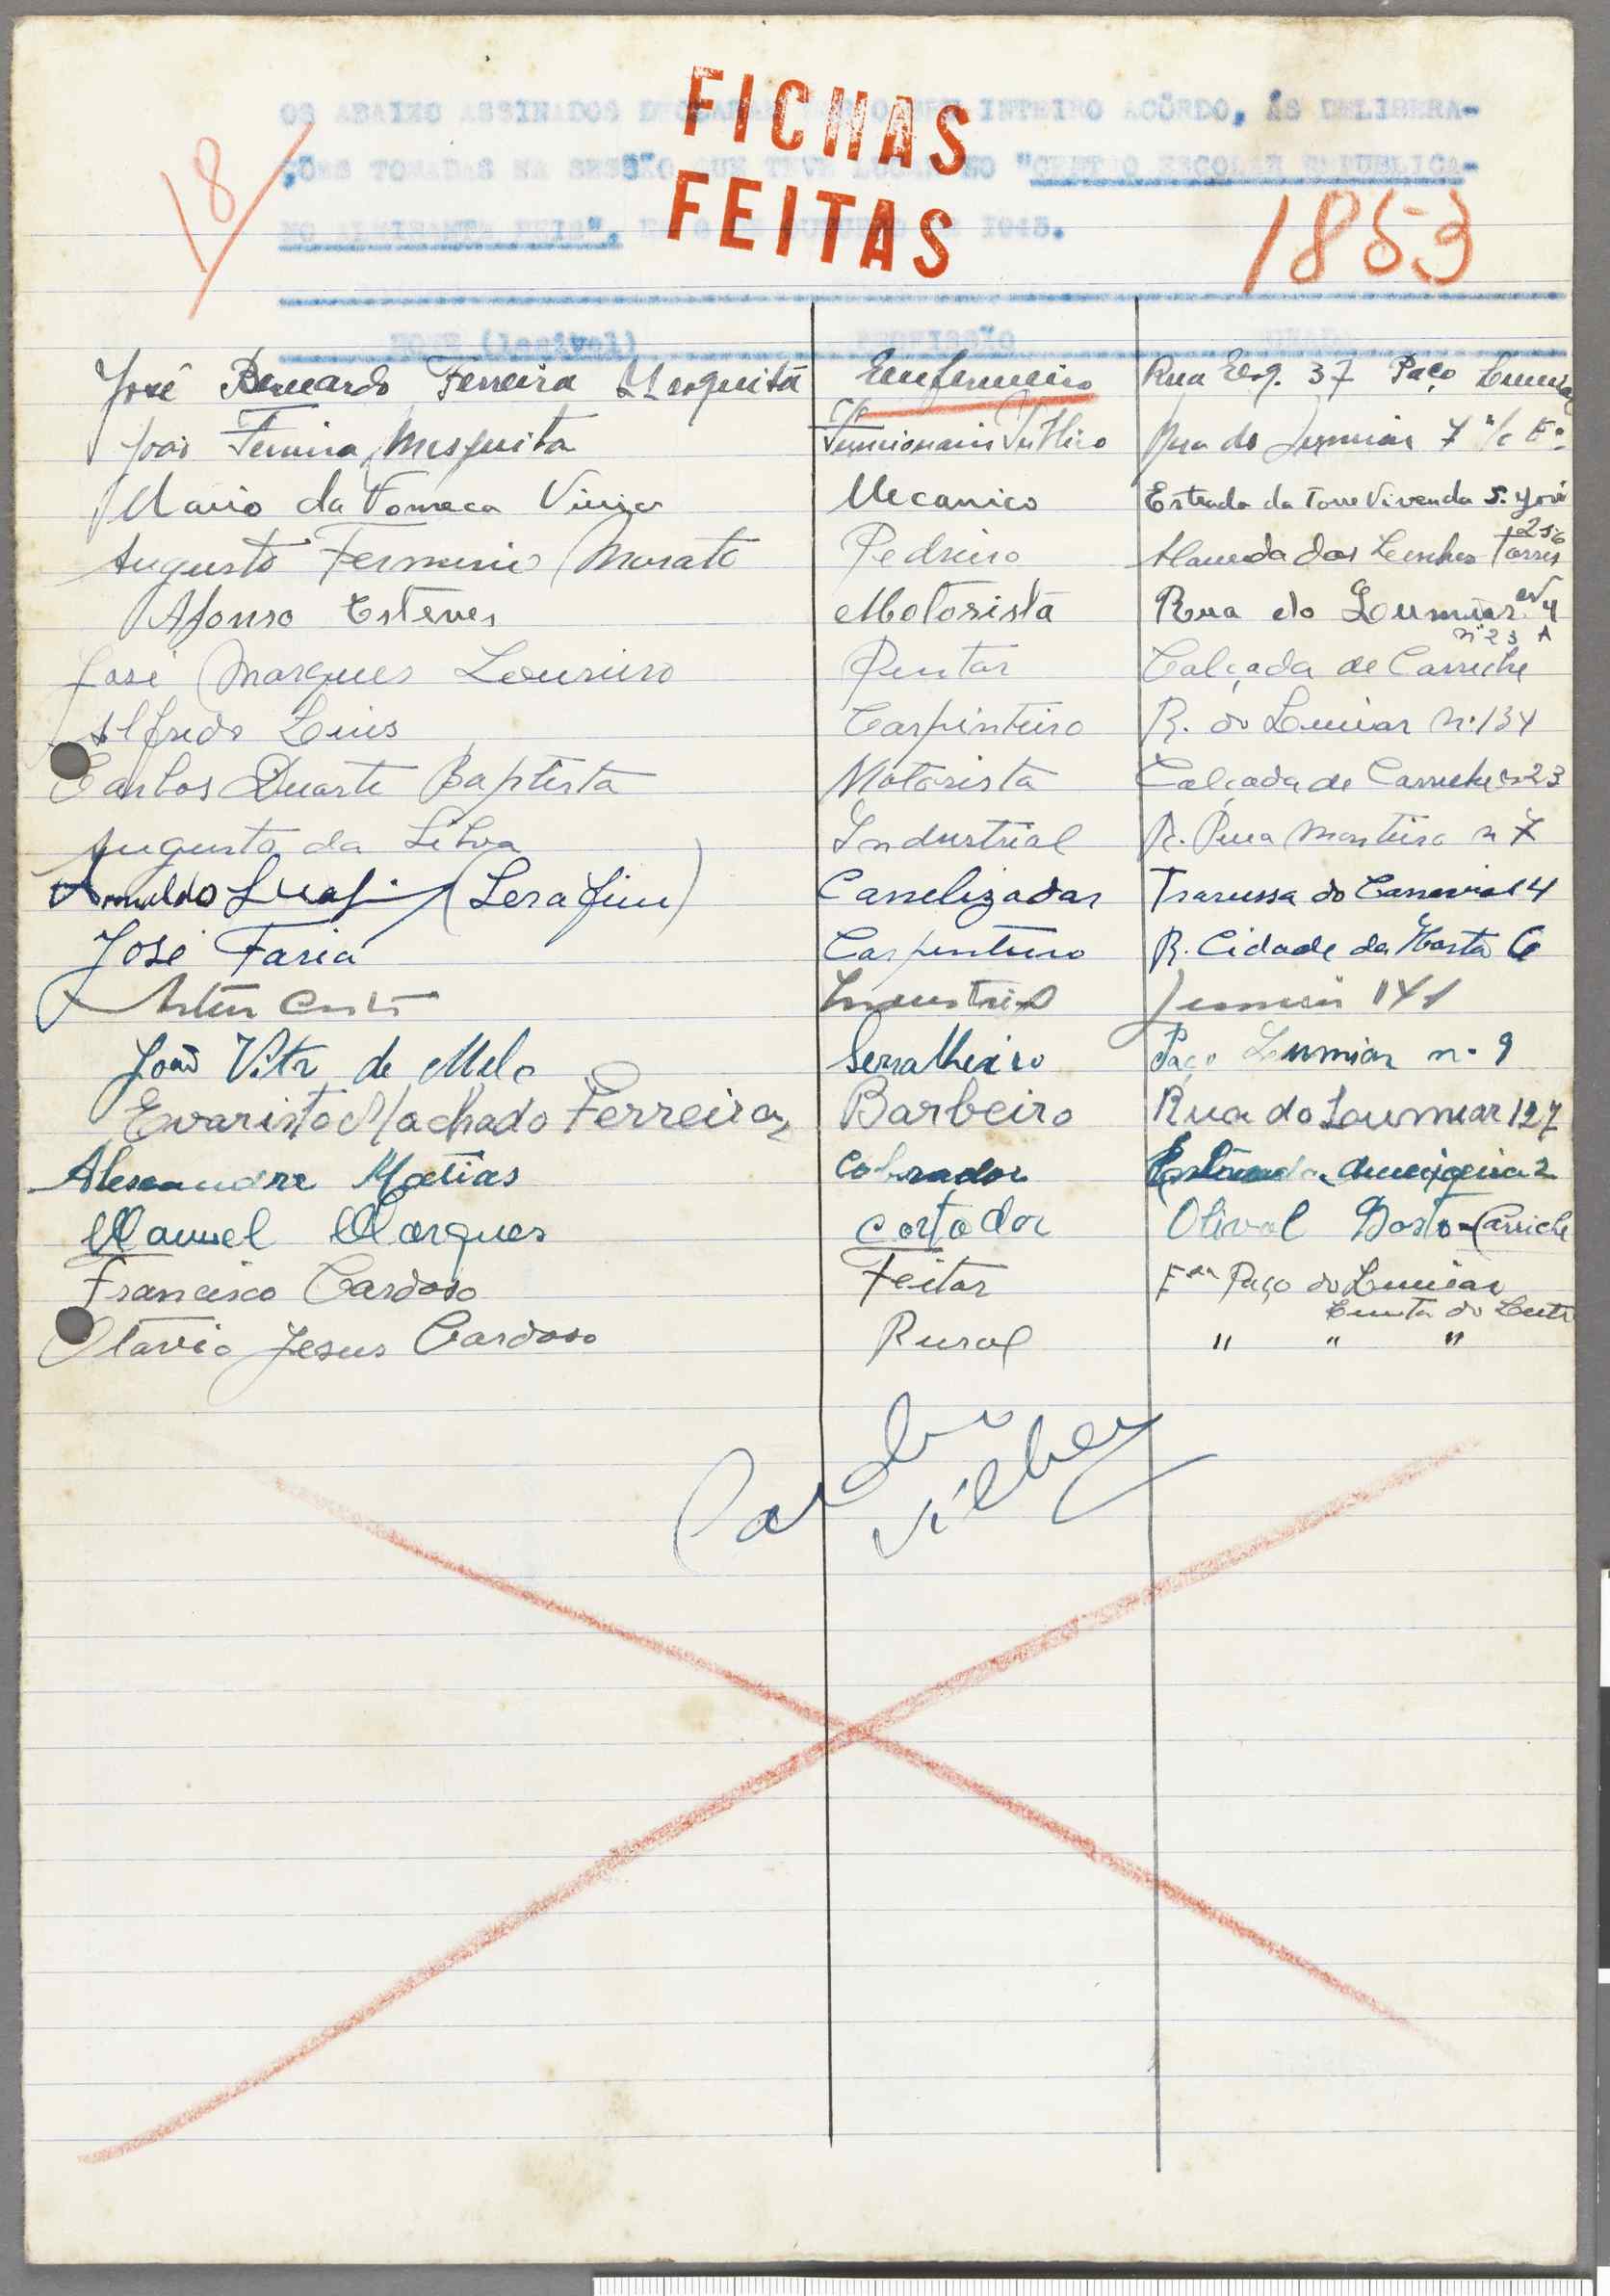 FICHAS
FEITAS
18
1853
OS ABAIXO ASSINADOS DECLARAM INTEIRO ACÔRDO, ÁS DELIBERA-
ÇÕES TOMADAS NA SESSÃO QUE TEVE LUGAR NO "CENTRO ESCOLAR REPUBLICA-
NO ALMIRANTE REIS", OUTUBRO 1945.
NOME (legivel) PROFISSÃO MORADA
José Bernardo Ferreira Mesquita Enfermeiro Rua 37 Paço Lumiar
João Ferreira Mesquita Funcionario Publico Rua do Lumiar 7 r/c Eº
Mario da Fonseca Mecanico Estrada da Torre Vivenda S. José
Augusto Fermino Morato Pedreiro Alameda das Linhas Torres 256
Afonso Esteves Motorista Rua do Loumiar nº 4
José Marques Loureiro Pintor Calçada de Carriche nº 23 A
Alfredo Luis Carpinteiro R. do Lumiar nº 134
Carlos Duarte Baptista Motorista Calçada de Carriche nº 23
Augusto da Silva Industrial R. Monteiro n 7
Arnaldo (Serafim) Canelizador Travessa do 14
José Faria Carpinteiro R. Cidade da Horta 6
Artur Costa Industrial Lumiar 141
João Vitr de Melo Serralheiro Paço Lumiar n. 9
Evaristo Machado Ferreira Barbeiro Rua do Loumiar 127
Alexandre Matias Cobrador Estrada Ameixoeira 2
Manuel Marques cortador Olival Basto-Carriche
Francisco Cardoso Feitor Paço do Lumiar
Otavio Jesus Cardoso Rural " " "